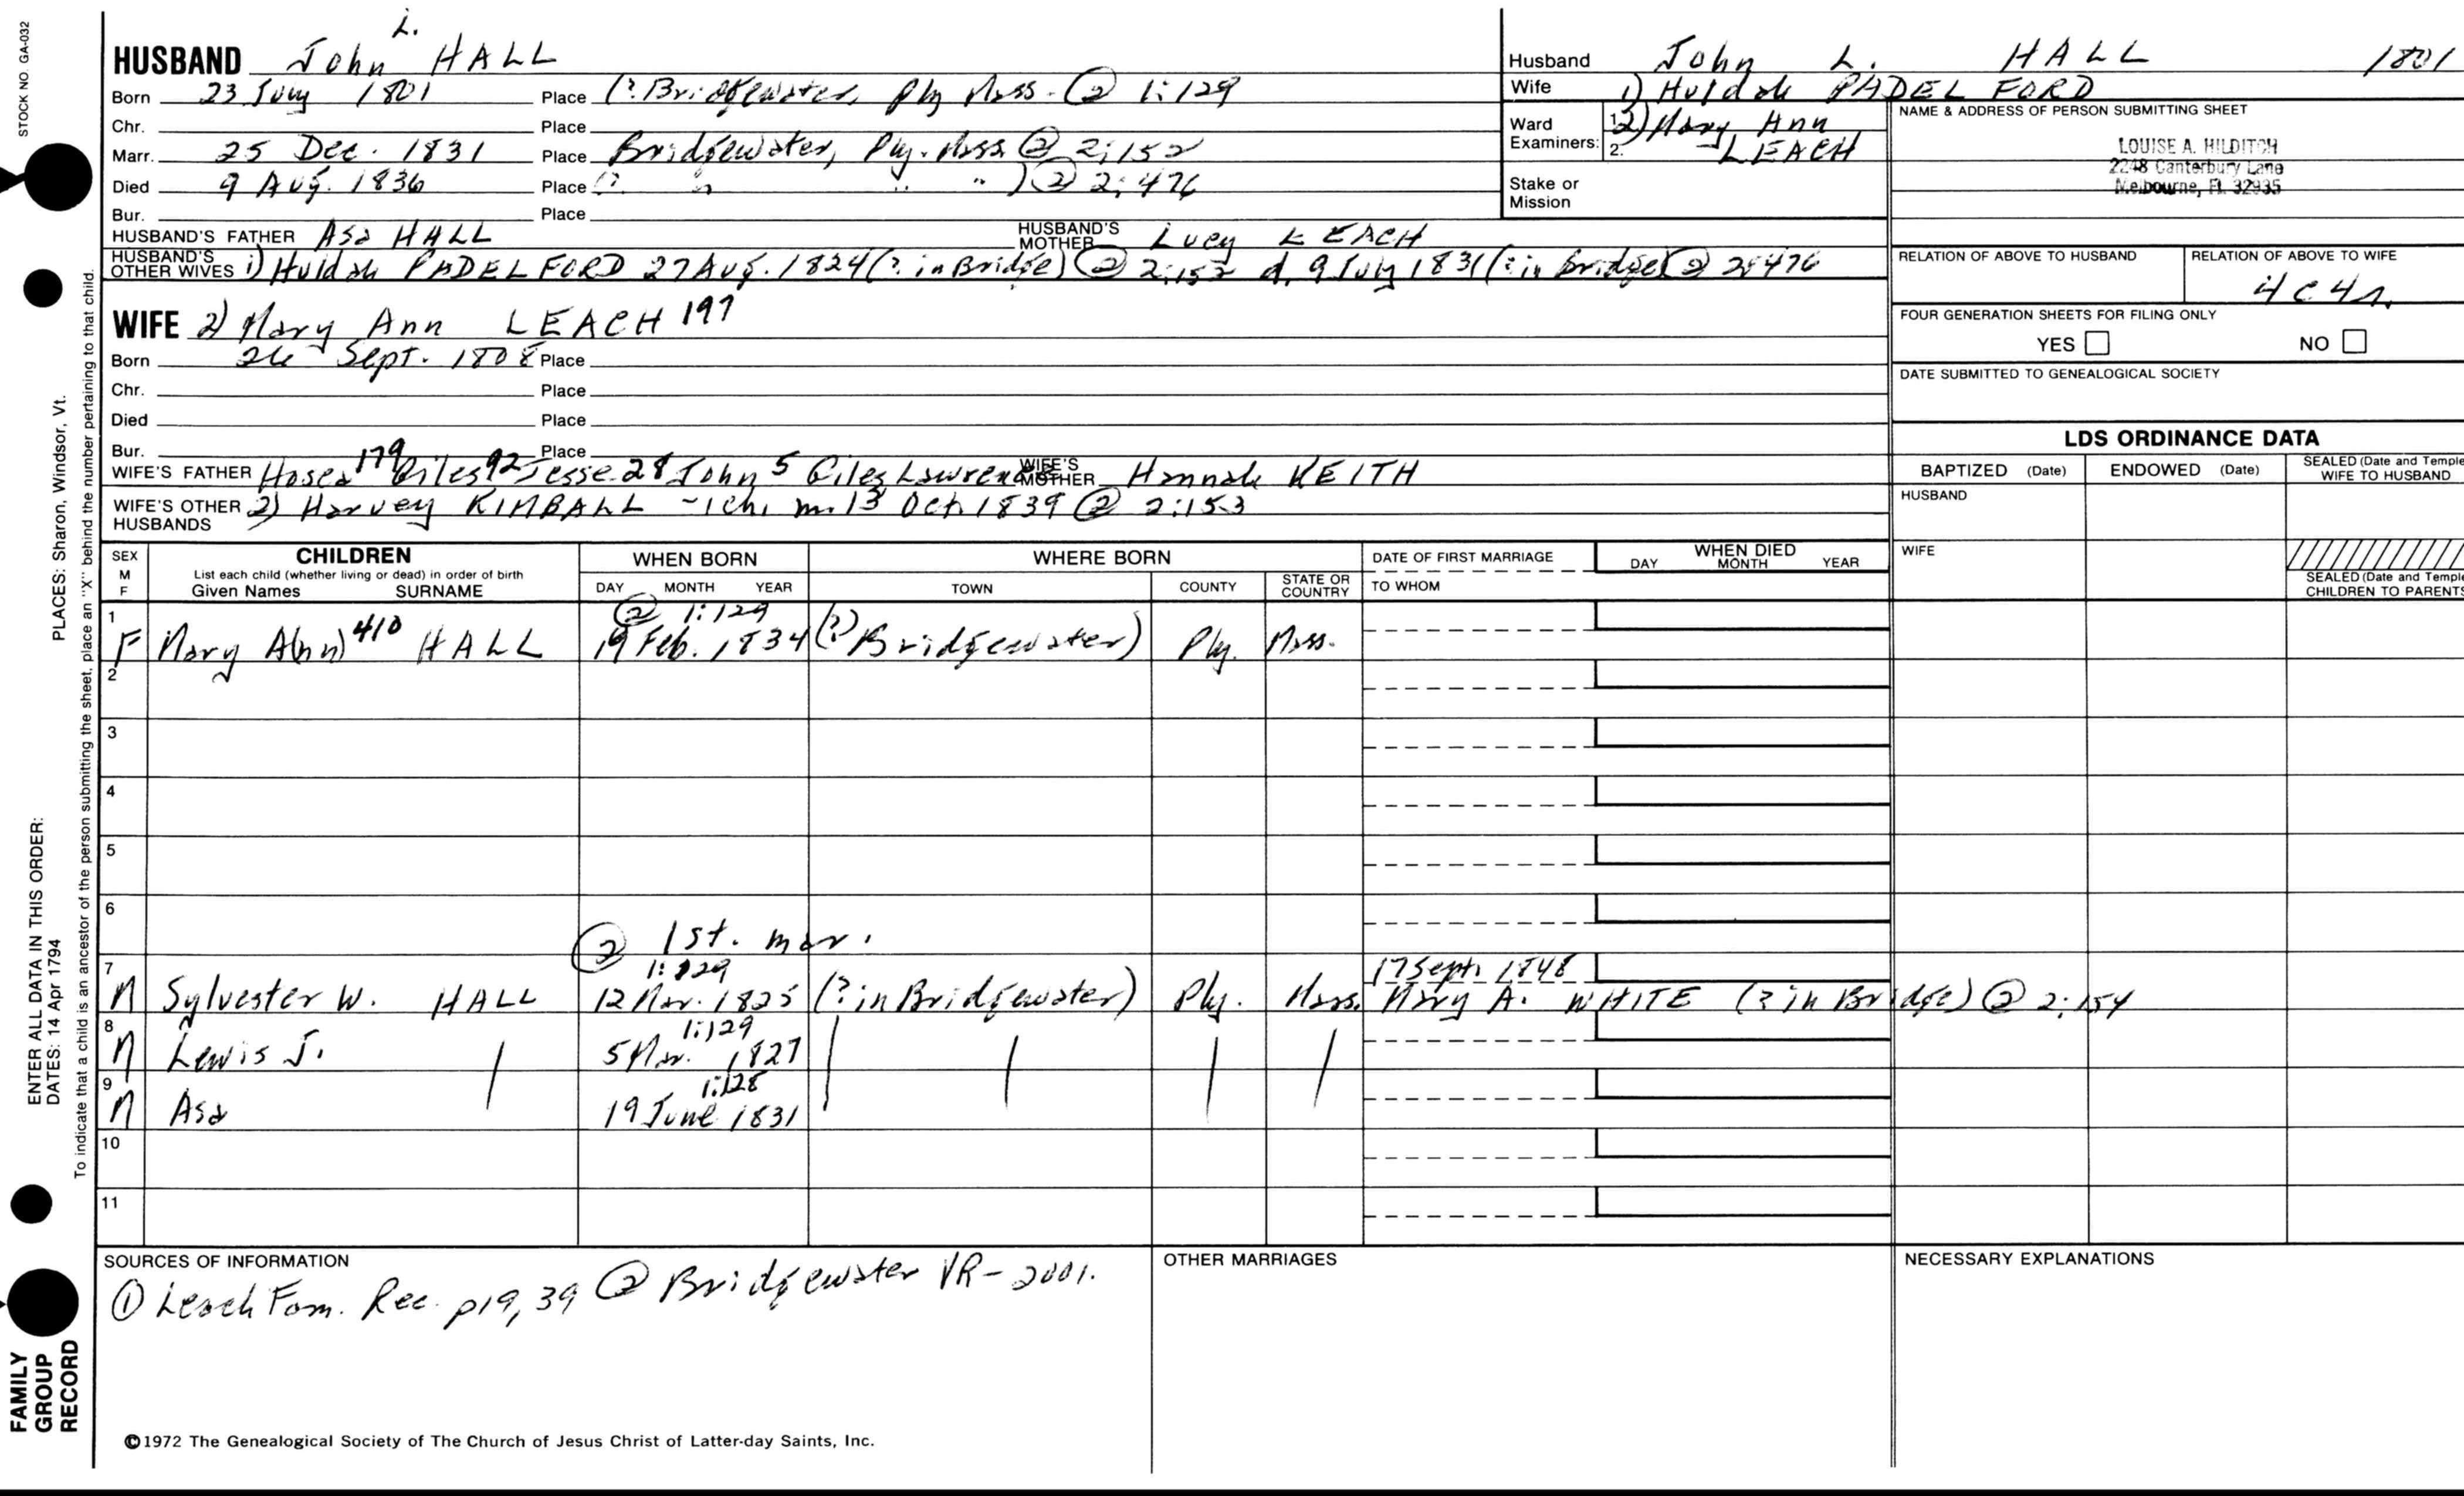 STOCK NO. GA-032
L.
HUSBAND John HALL
Born 23 July 1801 Place (? Bridgewater, Ply Mass. ② 1:129
Chr. Place
Marr. 25 Dec. 1831 Place Bridgewater, Ply. Mass ② 2:152
Died 9 Aug. 1836 Place (? " " " ) ② 2:476
Bur. Place
HUSBAND'S FATHER Asa HALL HUSBAND'S MOTHER Lucy LEACH
HUSBAND'S OTHER WIVES 1) Huldah PADELFORD 27 Aug. 1824 (? in Bridge) ② 2:152 d. 9 July 1831 (? in Bridge) ② 2:476
WIFE 2) Mary Ann LEACH 197
Born 26 Sept. 1808 Place
Chr. Place
Died Place
Bur. Place
WIFE'S FATHER Hosea 179 Giles 92 Jesse 28 John 5 Giles Lawrence WIFE'S MOTHER Hannah KEITH
WIFE'S OTHER HUSBANDS 2) Harvey KIMBALL -1ch. m. 13 Oct. 1839 ② 2:153
Husband John L. HALL 1801
Wife 1) Huldah PADELFORD
Ward Examiners: 1. 2) Mary Ann
2. LEACH
Stake or Mission
NAME & ADDRESS OF PERSON SUBMITTING SHEET
LOUISE A. HILDITCH
2248 Canterbury Lane
Melbourne, FL 32935
RELATION OF ABOVE TO HUSBAND RELATION OF ABOVE TO WIFE
4c4r.
FOUR GENERATION SHEETS FOR FILING ONLY
YES NO
DATE SUBMITTED TO GENEALOGICAL SOCIETY
LDS ORDINANCE DATA
BAPTIZED (Date) ENDOWED (Date) SEALED (Date and Temple) WIFE TO HUSBAND
HUSBAND
WIFE
SEALED (Date and Temple) CHILDREN TO PARENTS
SEX M F CHILDREN WHEN BORN WHERE BORN DATE OF FIRST MARRIAGE WHEN DIED
List each child (whether living or dead) in order of birth
Given Names SURNAME DAY MONTH YEAR TOWN COUNTY STATE OR COUNTRY TO WHOM DAY MONTH YEAR
1 ② 1:129
F Mary A(nn) 410 HALL 19 Feb. 1834 (? Bridgewater) Ply. Mass.
2
3
4
5
6
② 1st. mar.
7 1:129 17 Sept. 1848
M Sylvester W. HALL 12 Mar. 1825 (? in Bridgewater) Ply. Mass. Mary A. WHITE (? in Bridge) ② 2:154
8 1:129
M Lewis J. 5 Mar. 1827
9 1:128
M Asa 19 June 1831
10
11
SOURCES OF INFORMATION
① Leach Fam. Rec. p19, 39 ② Bridgewater VR-2001.
OTHER MARRIAGES
NECESSARY EXPLANATIONS
©1972 The Genealogical Society of The Church of Jesus Christ of Latter-day Saints, Inc.
FAMILY
GROUP
RECORD
ENTER ALL DATA IN THIS ORDER:
DATES: 14 Apr 1794 PLACES: Sharon, Windsor, Vt.
To indicate that a child is an ancestor of the person submitting the sheet, place an "X" behind the number pertaining to that child.